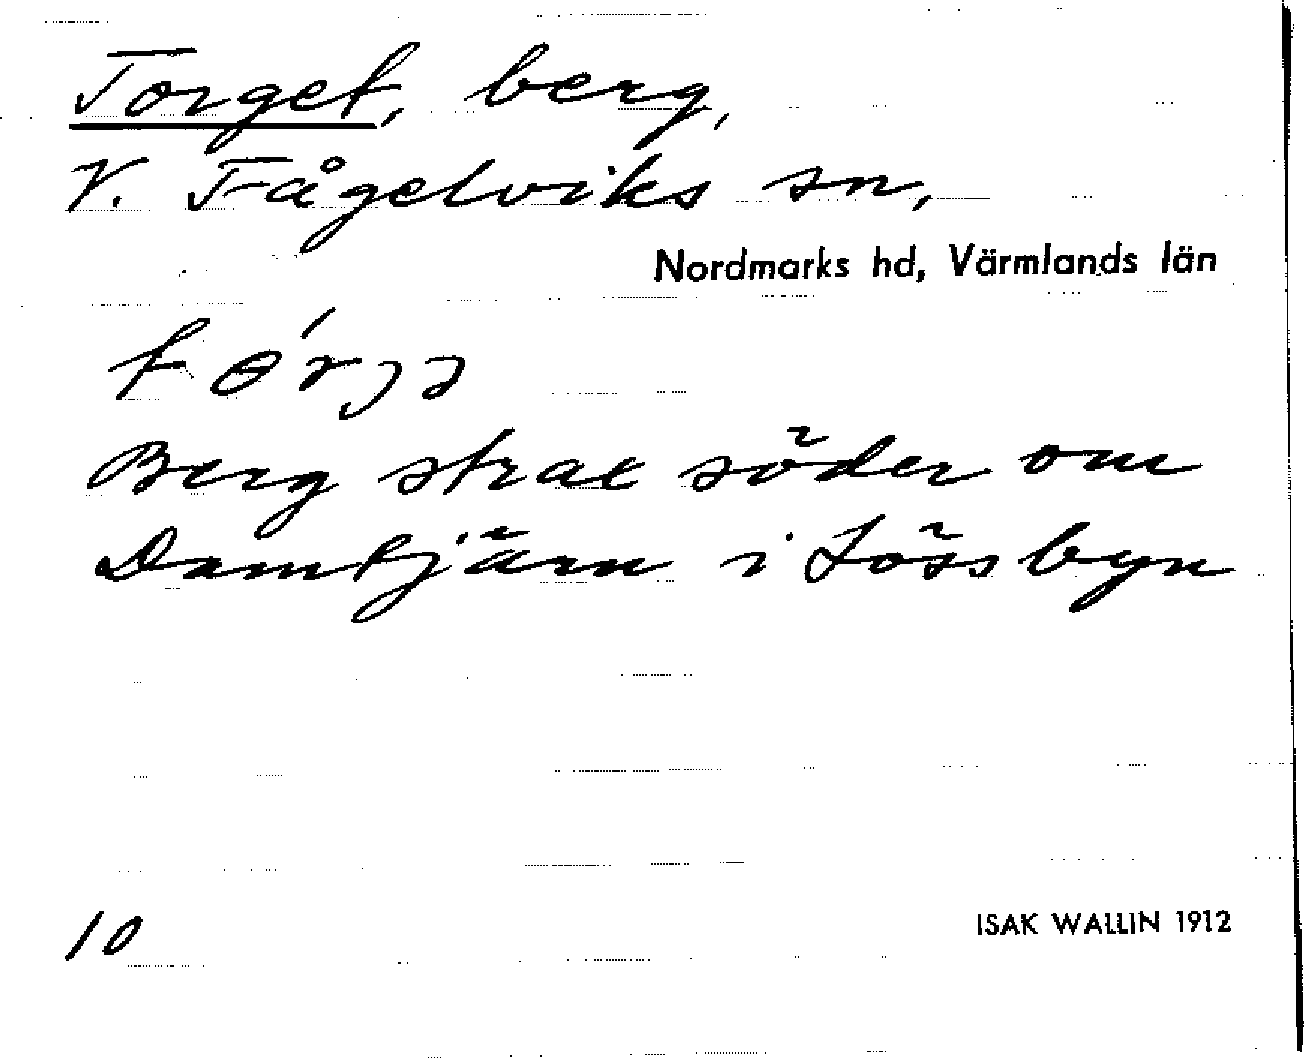 Torget, berg,
V. Fågelviks sn,
Nordmarks hd, Värmlands län
Berg strax söder om
Damtjärn i Lössbyn
10
ISAK WALLIN 1912